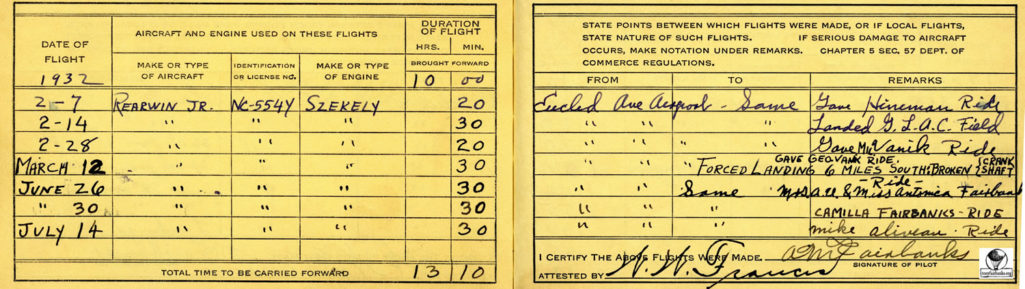 DATE OF FLIGHT
1932
AIRCRAFT AND ENGINE USED ON THESE FLIGHTS
MAKE OR TYPE OF AIRCRAFT
IDENTIFICATION OR LICENSE NO.
MAKE OR TYPE OF ENGINE
DURATION OF FLIGHT
HRS. MIN.
BROUGHT FORWARD
10 00
2-7 REARWIN JR. NC-554Y SZEKELY 20
2-14 " " " " 30
2-28 " " " " 20
MARCH 12 " " " 30
JUNE 26 " " " 30
" 30 " " " 30
JULY 14 " " " 30
TOTAL TIME TO BE CARRIED FORWARD 13 10
STATE POINTS BETWEEN WHICH FLIGHTS WERE MADE, OR IF LOCAL FLIGHTS,
STATE NATURE OF SUCH FLIGHTS. IF SERIOUS DAMAGE TO AIRCRAFT
OCCURS, MAKE NOTATION UNDER REMARKS. CHAPTER 5 SEC. 57 DEPT. OF
COMMERCE REGULATIONS.
FROM TO REMARKS
Euclid Ave Airport - Same Gave Hineman Ride
" " " Landed G.L.A.C. Field
" " " Gave Vanik Ride
" " " GAVE GEO VANIK RIDE.
FORCED LANDING 6 MILES SOUTH: BROKEN (CRANK SHAFT)
" " Same - Ride -
& Miss Antonica Fairbanks
" " " CAMILLA FAIRBANKS - RIDE
" " " mike Ride
I CERTIFY THE ABOVE FLIGHTS WERE MADE. A M Fairbanks
SIGNATURE OF PILOT
ATTESTED BY W. W. Francis